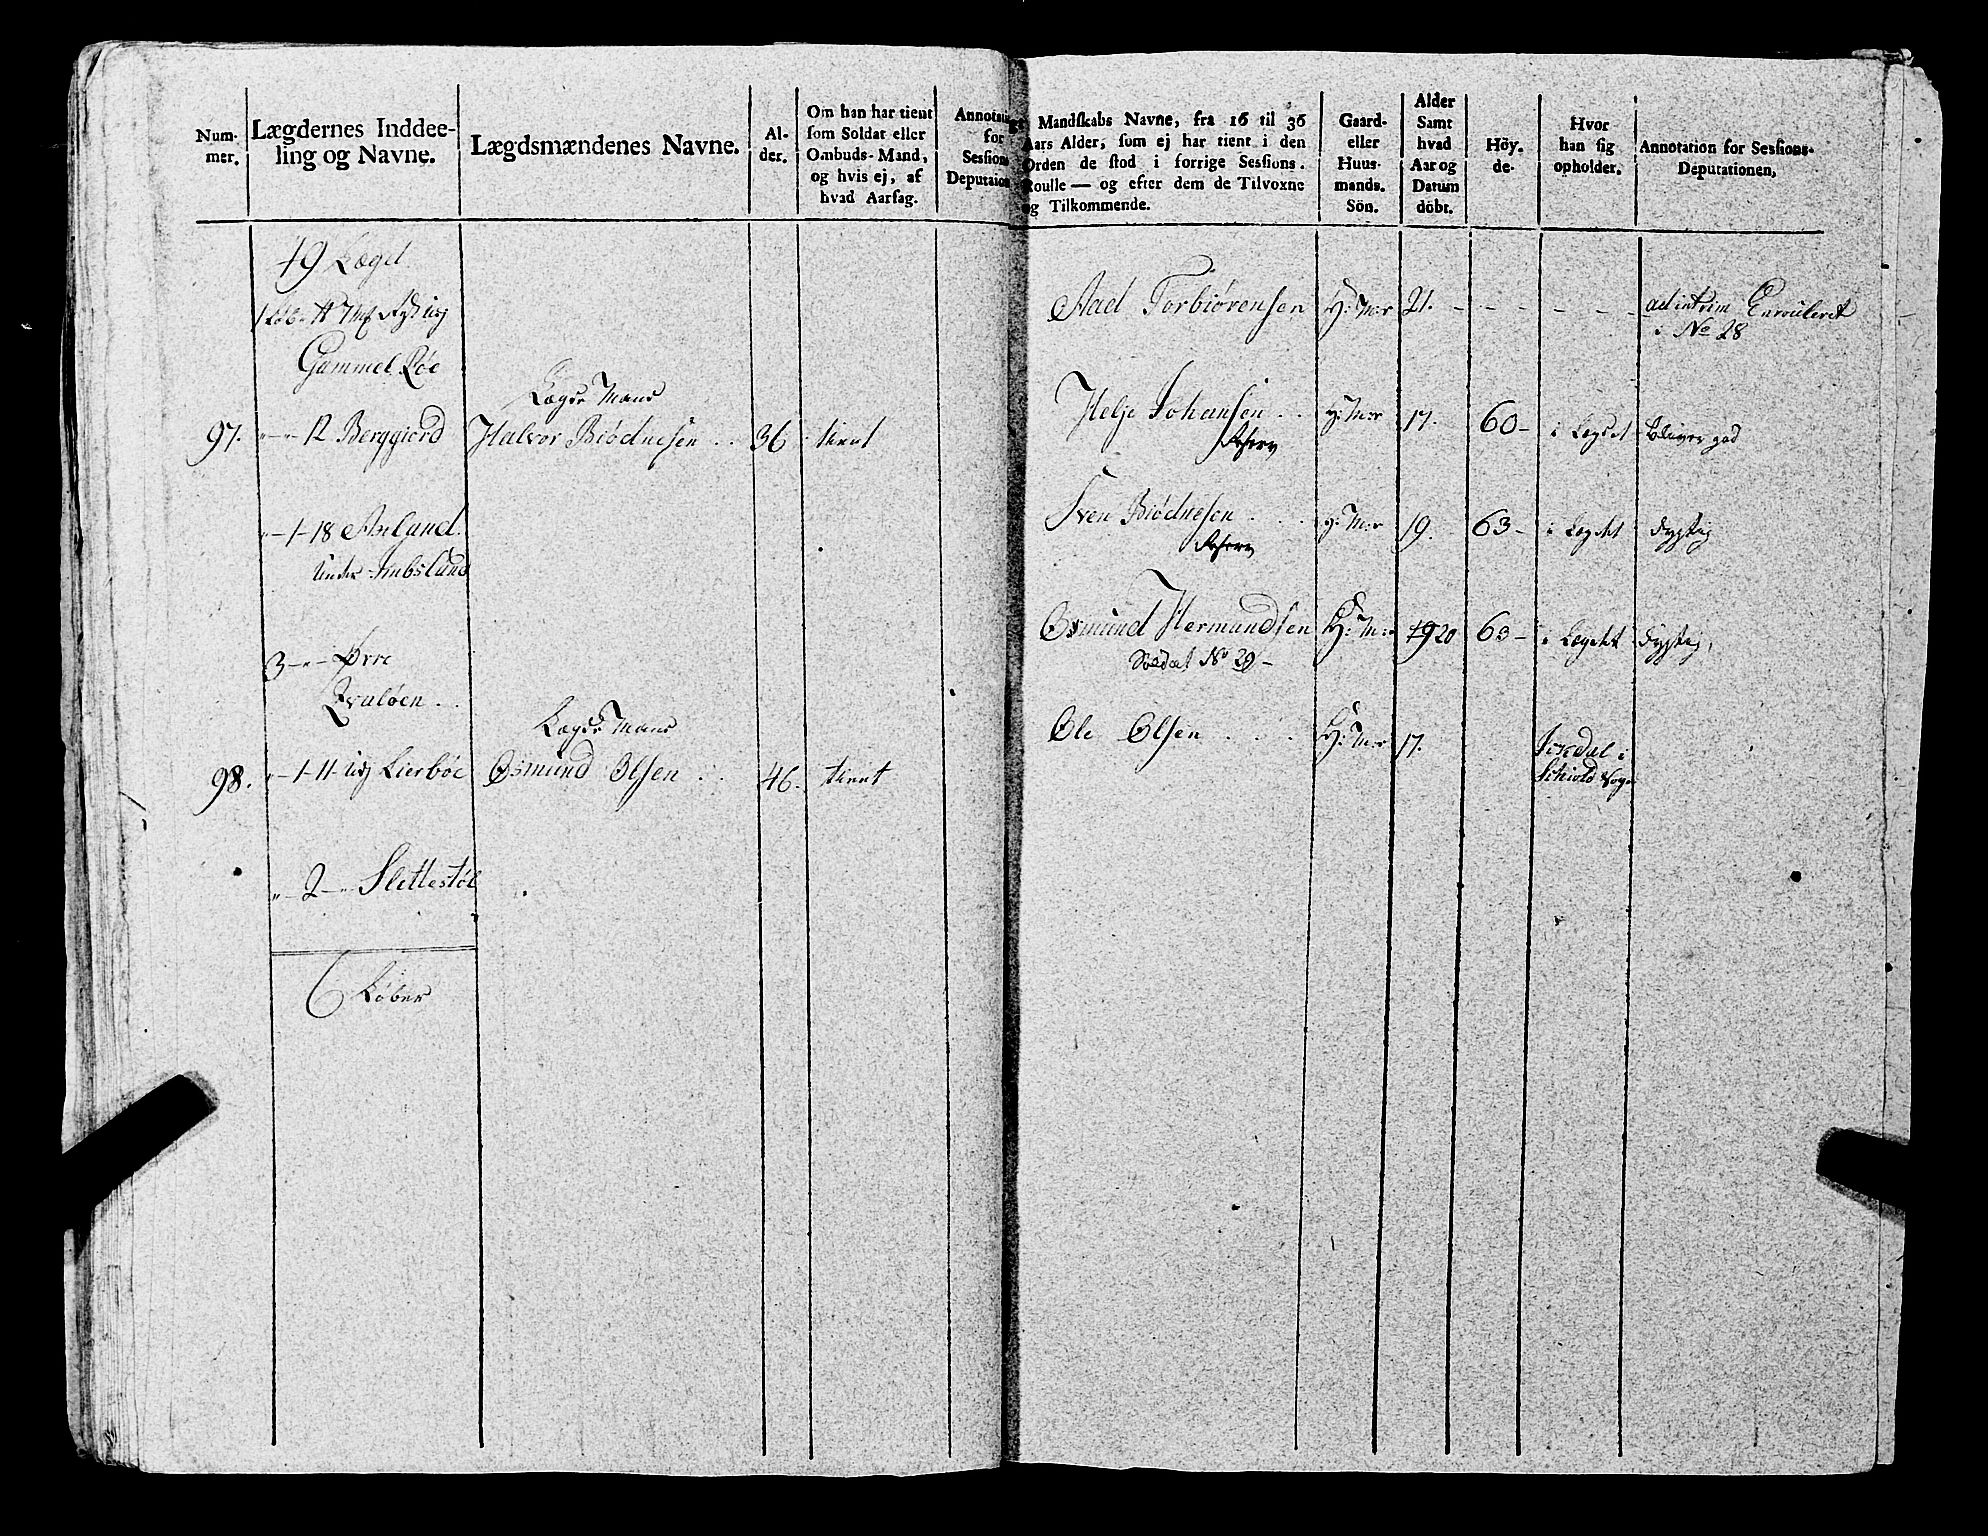 Num-
mer.
Lægdernes Inddee-
ling og Navne.
Lægdsmændenes Navne.
Al-
der.
Om han har tient
som Soldat eller
Ombuds-Mand,
og hvis ej, af
hvad Aarsag.
Annotation
for
Sessions
Deputation
49 Lægd
Gammel Löe
Lægds Mand
97. " - " 12 Berggiord Halvor Biödnesen . . 36 tient
" - 1 - 18 Aasland
under Imbsland
3 - " - Övre
Qvalöen . .
Lægds Mand
98. " - 1 - 11 - Lierböe Osmund Olsen . . 46. tient
" - 2 - " Slettestöl
6 Löber
Mandskabs Navne, fra 16 til 36
Aars Alder, som ej har tient i den
Orden de stod i forrige Sessions-
Roulle — og efter dem de Tilvoxne
og Tilkommende.
Gaard-
eller
Huus-
mands-
Sön.
Alder
Samt
hvad
Aar og
Datum
döbt.
Höy-
de.
Hvor
han sig
opholder.
Annotation for Sessions-
Deputationen,
Aad Torbiörensen H: M:r 21. - - - - - - ad intrim Enrouleret
No 28
Helje Johansen . . H: M:r 17. 60 - i Lægdet bliver god
Reserv
Sven Biödnesen . . . H: M:r 19. 63 - i Lægdet dygtig
Reserv
Osmund Hermandsen H: M:r 19 20 63 - i Lægdet dygtig,
Soldat No 29 -
Ole Olsen . . . H: M:r 17.
i